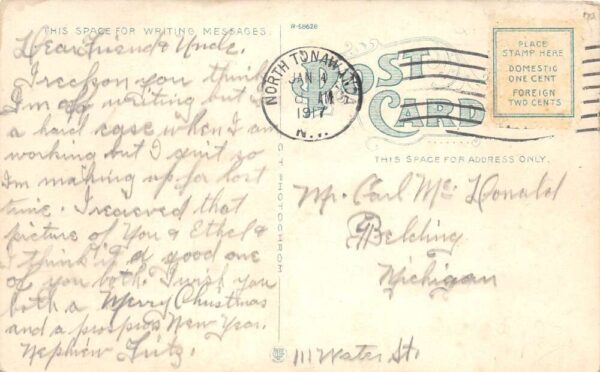 THIS SPACE FOR WRITING MESSAGES
R-58628
Dear Friend & Uncle.
I reckon you think
I'm off writing but is
a hard case when I am
working but I quit so
I'm making up for lost
time. I recieved that
picture of You & Ethel &
I think it a good one
of you both. I wish you
both a Merry Christmas
and a prospros New Year.
Nephiew Fritz.
NORTH TONAWANDA
JAN
AM
1917
N.Y.
POST
CARD
PLACE
STAMP HERE
DOMESTIC
ONE CENT
FOREIGN
TWO CENTS
THIS SPACE FOR ADDRESS ONLY.
C T PHOTOCHROM
Mr. Carl Mc Donald
Belding
Michigan
111 Water St.